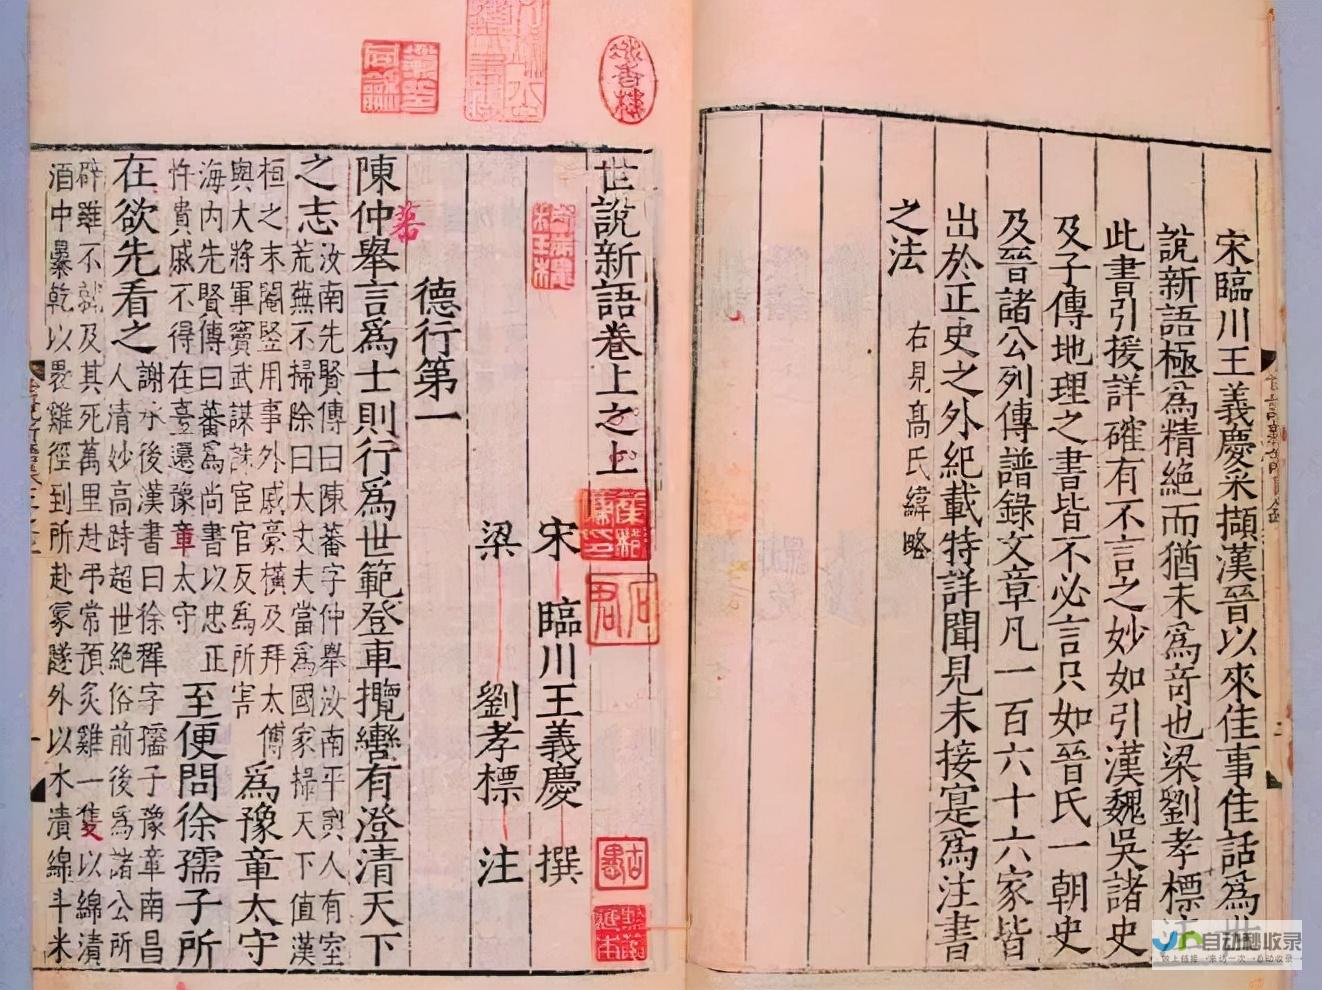 宋臨川王義慶采擷漢晉以來佳事佳話為世
說新語極為精絕而猶未為奇也梁劉孝標注
此書引援詳確有不言之妙如引漢魏吳諸史
及子傳地理之書皆不必言只如晉氏一朝史
及晉諸公列傳譜錄文章凡一百六十六家皆
出於正史之外紀載特詳聞見未接寔為注書
之法 右見高氏緯略
世說新語卷上之上
宋 臨川王義慶 撰
梁 劉孝標 注
德行第一
陳仲舉言為士則行為世範登車攬轡有澄清天下
蕃
之志
汝南先賢傳曰陳蕃字仲舉汝南平輿人有室
荒蕪不掃除曰大丈夫當為國家掃天下值漢
桓之末閹豎用事外戚豪橫及拜太傅
與大將軍竇武謀誅宦官反為所害
為豫章太守
海內先賢傳曰蕃為尚書以忠正
忤貴戚不得在臺遷豫章太守
至便問徐孺子所
在欲先看之
謝承後漢書曰徐穉字孺子豫章南昌
人清妙高跱超世絕俗前後為諸公所
辟雖不就及其死萬里赴弔常預炙雞一隻以綿漬
酒中暴乾以裹雞徑到所赴冢隧外以水漬綿斗米
自动秒收录